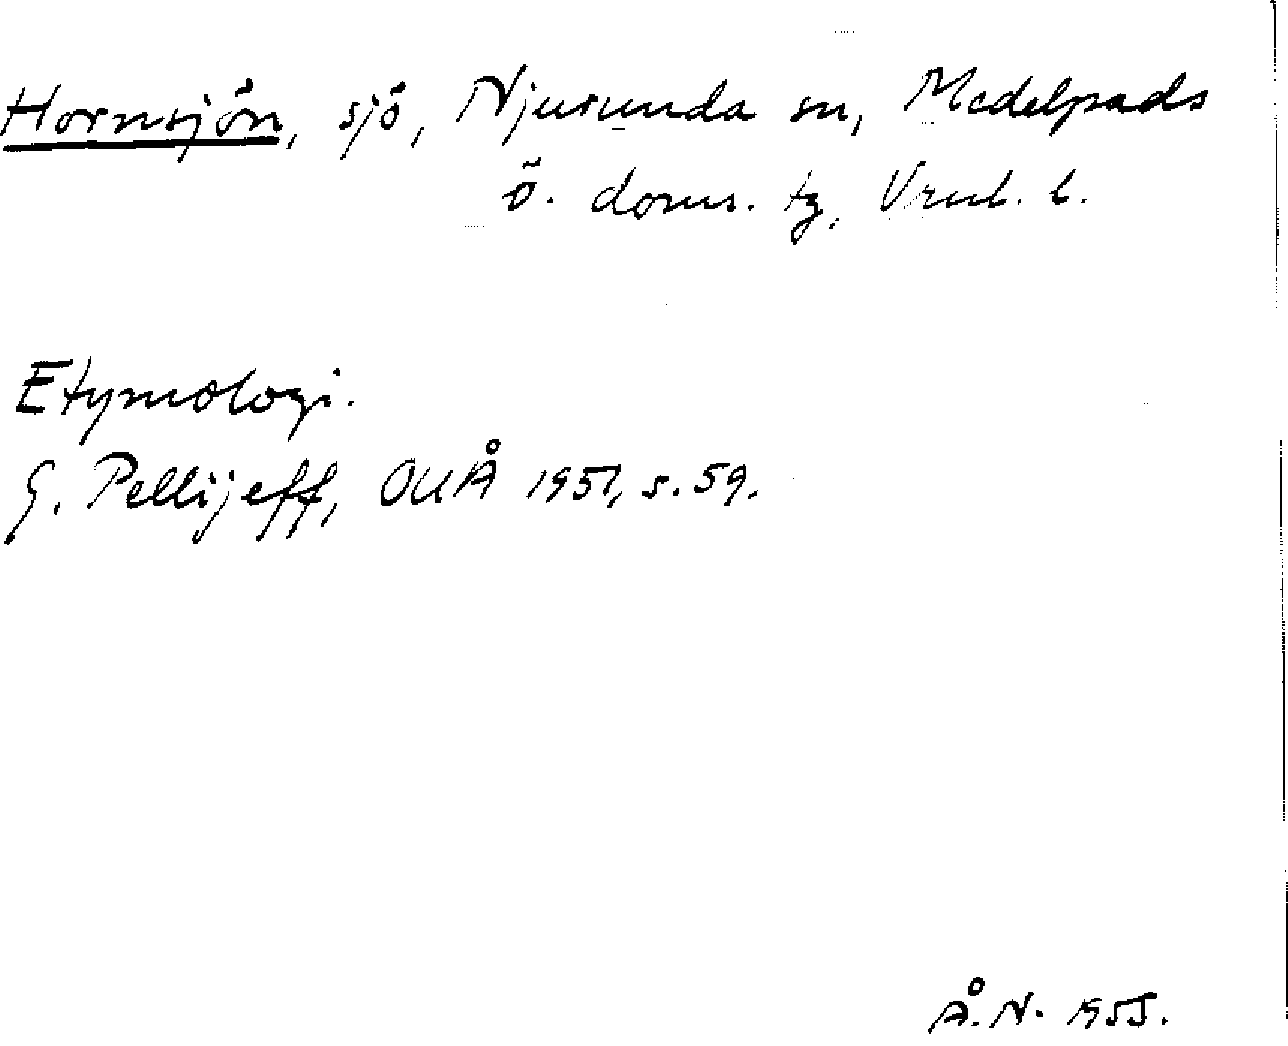 Hornsjön, sjö, Njurunda sn, Medelpads
ö. doms. tg, Vrnl. l.
Etymologi.
G. Pellijeff, OUÅ 1951, s. 59.
Å. N. 1955.